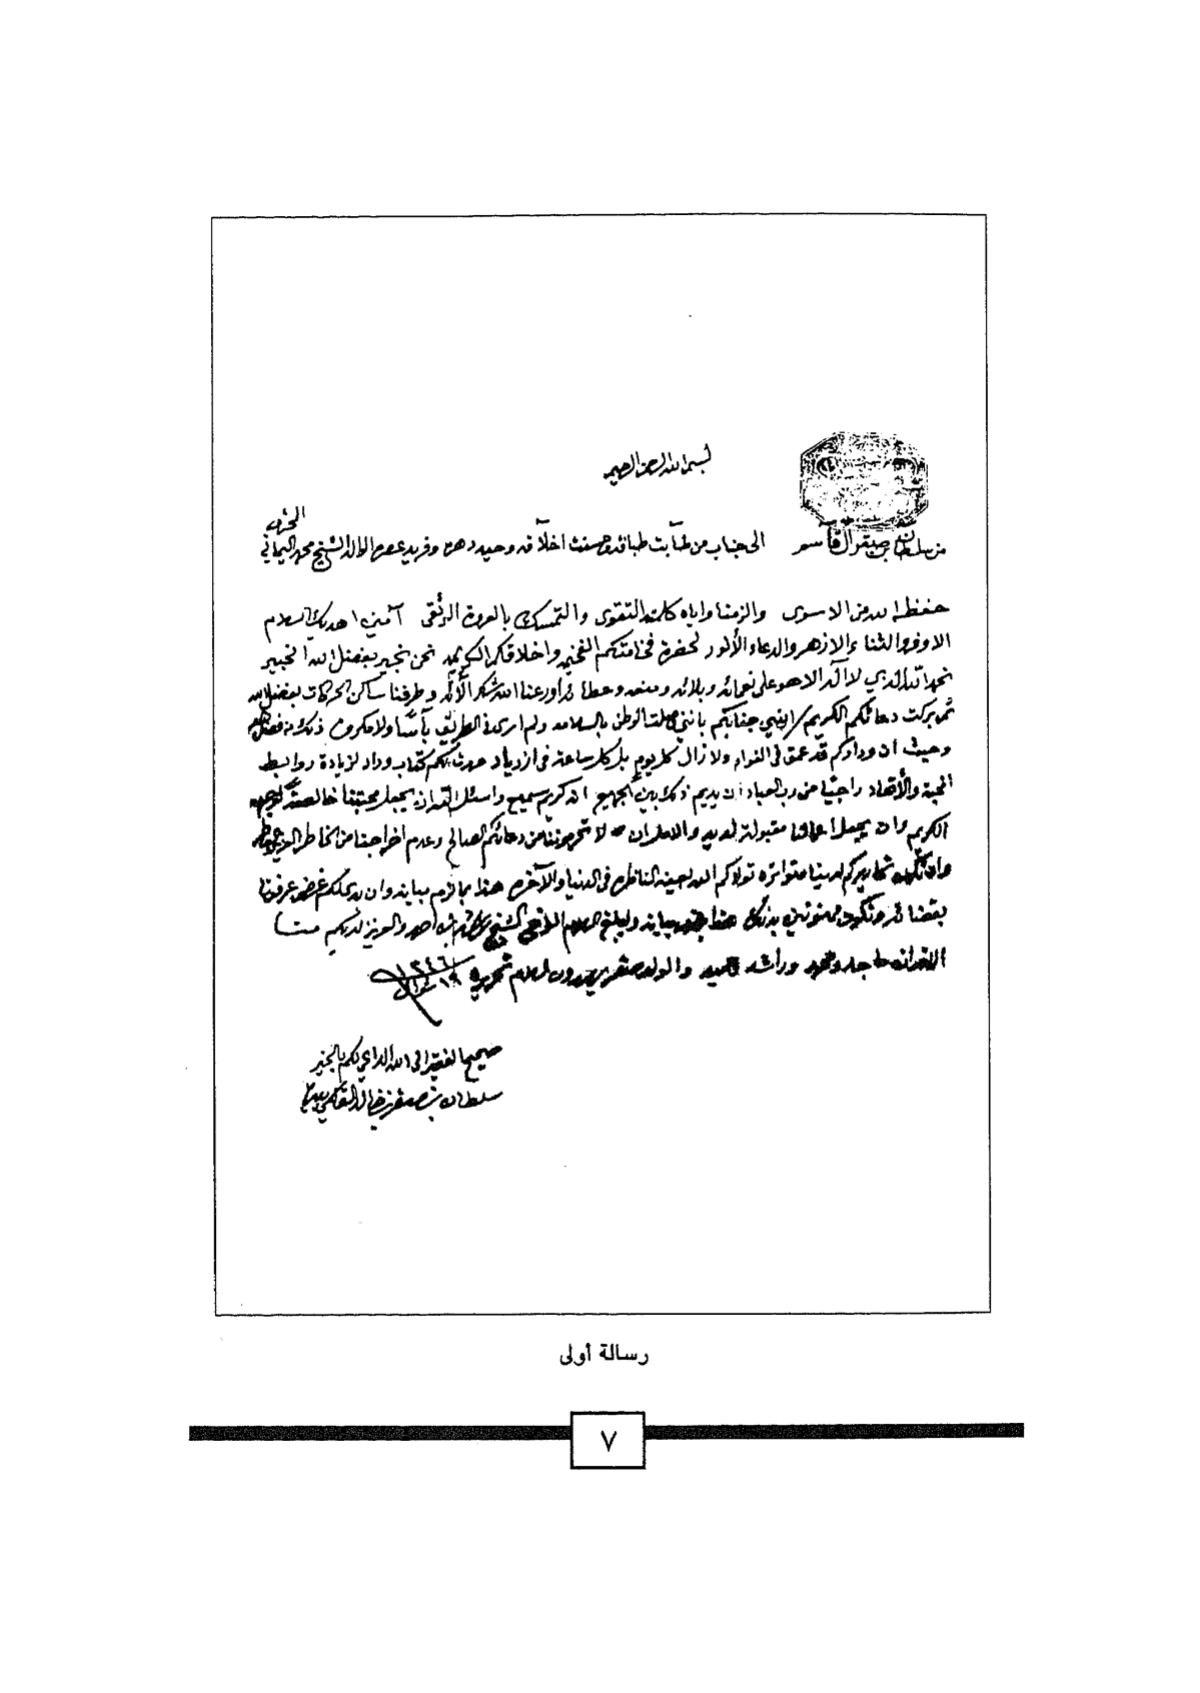 بسم الله الرحمن الرحيم
من سلطان بن صقر القاسمي الى جناب من طابت طبائعه وحسنت اخلاقه وحيد دهره وفريد عصره الوالد الشيخ محمد اليماني
المحترم
حفظه الله من الاسوى والزمنا واياه كلمة التقوى والتمسك بالعروة الوثقى آمين اهديك السلام
الاوفر والثناء الازهر والدعاء الأنور لحضرة فخامتكم الفخيم واخلاقكم الكريم نحن بخير بفضل الله الخبير
نحمد الله الذي لا اله الا هو على نعمائه وبلائه ومنعه وعطائه اوزعنا الله شكر آلائه وطرفنا ساكن الحركات بفضل الله
ثم بركت دعائكم الكريم انهي جنابكم بانني وصلت الوطن بالسلامه ولم ارى في الطريق بآسا ولا مكروه ذلك من فضل الله
وحيث ان ودادكم قد عمق في الفواد ولا زال كل يوم بل كل ساعة في ازدياد حررت لكم كتاب وداد لزيادة روابط
المحبة والأتحاد راجيا من رب العباد ان يديم ذلك بين الجميع انه كريم سميع واسئل الله ان يجعل محبتنا خالصة لوجهه
الكريم وان يجعل اعمالنا مقبولة لديه لا تحرمونا من دعائكم الصالح وعدم اخراجنا من الخاطر
وان تكون تحاريركم لدينا متواتره تولاكم الله بعينه الناظره في الدنيا والآخره هذا ما لزم بيانه وان بدا لكم غرض عرفونا
بقضائه ونكون ممنونين بذلك هذا ما لزم بيانه وابلغ السلام الشيخ احمد والعزيز لديكم منا
الاخوان ماجد ومحمد وراشد وحميد والولد صقر يهدون السلام تحريرا في ١٩ شوال
١٣٤٦
صحيح الفقير الى الله الداعي لكم بالخير
سلطان بن صقر بن خالد القاسمي بيده
رسالة أولى
٧